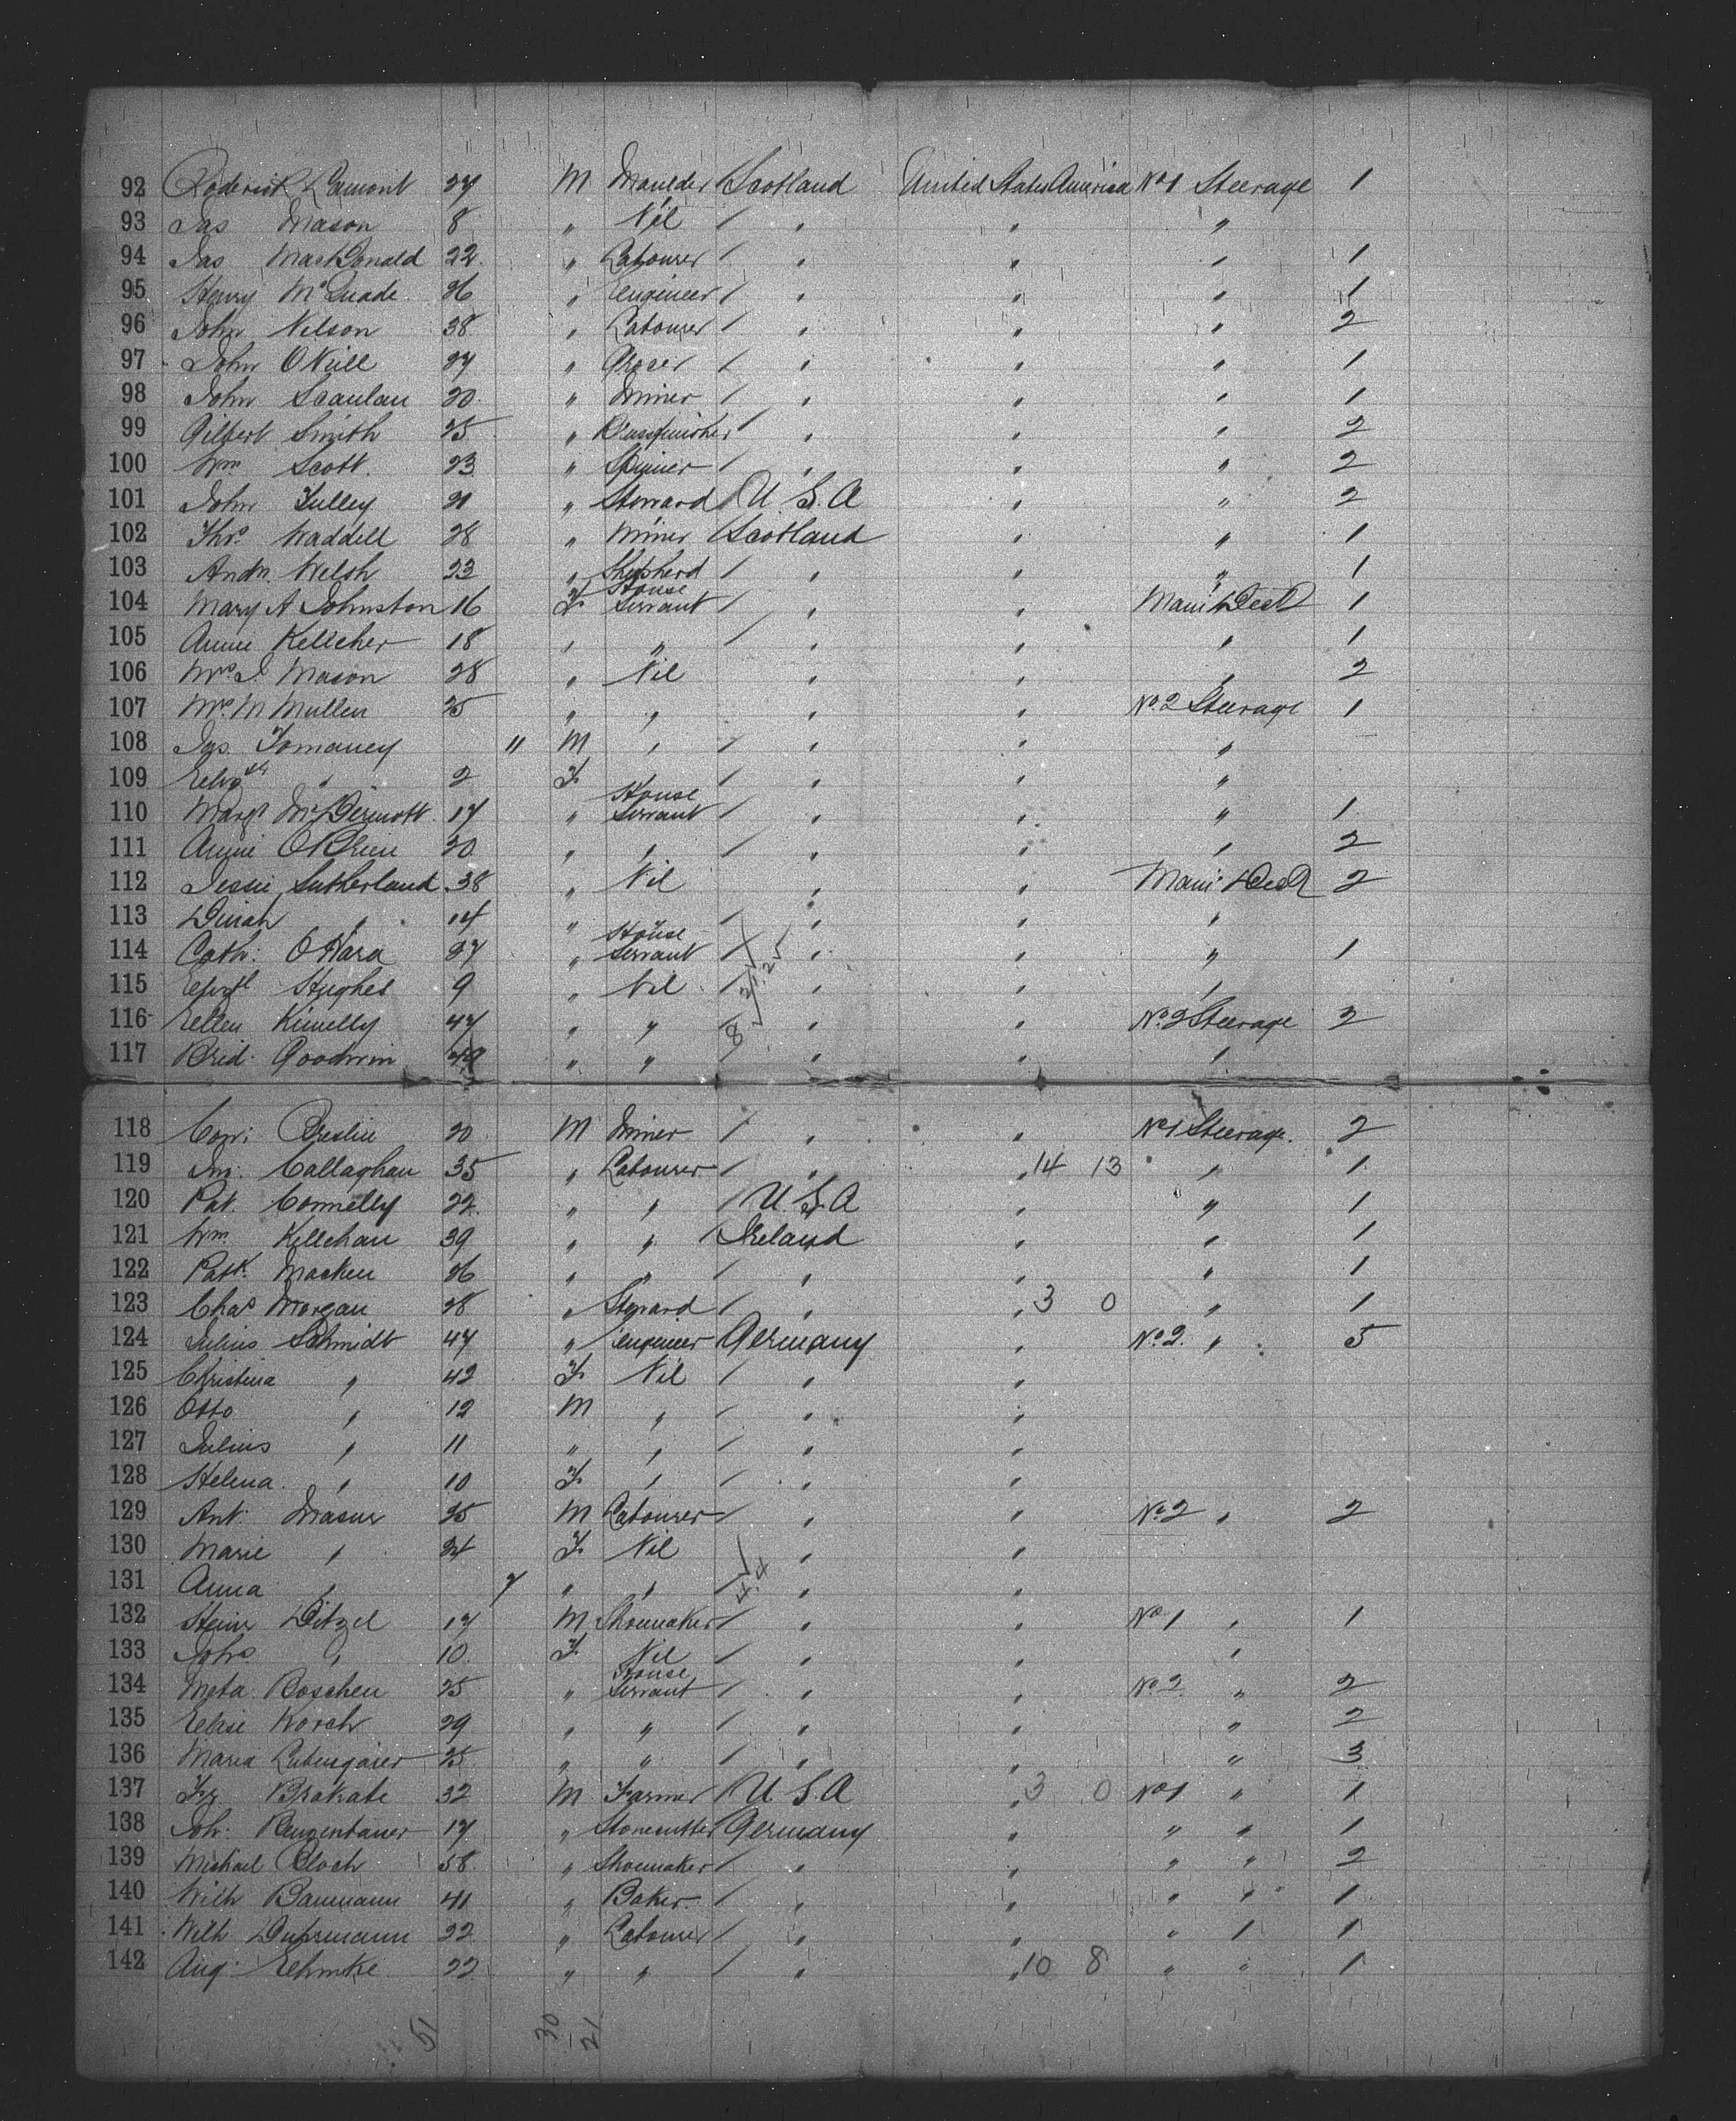 92 Roderick Lamont 27 M Moulder Scotland United States America No 1 Steerage 1
93 Jas Mason 8 " Nil / " " "
94 Jas MacDonald 22 " Labourer / " " " 1
95 Henry McQuade 26 " Engineer / " " " 1
96 John Nelson 38 " Labourer / " " " 2
97 John O'Neill 27 " Grocer / " " " 1
98 John Scanlan 20 " Miner / " " " 1
99 Gilbert Smith 25 " Brassfinisher / " " " 2
100 Wm Scott 23 " / " " " 2
101 John Tulley 21 " Steward / U.S.A " " 2
102 Thos Waddell 28 " Miner Scotland " " 1
103 Andw. Welsh 23 " Shepherd / " " " 1
104 Mary A Johnston 16 F House Servant / " " Main Deck 1
105 Annie Kelleher 18 " " / " " " 1
106 Mrs J. Mason 28 " Nil " " " 2
107 Mrs M Mullen 25 " " " " No. 2 Steerage 1
108 Jas. Tomaney 11 M " / " " "
109 Elizth " 2 F / " " "
110 Margt McDermott 17 " House Servant / " " " 1
111 Annie O'Brien 20 " " / " " " 2
112 Jessie Sutherland 38 " Nil " " Main Deck 2
113 Dinah " 14 " / " " "
114 Cath: O'Hara 27 " House Servant / " " " 1
115 Hughes 9 " Nil / " " "
116 Ellen Kinnelly 47 " " / " " No. 2 Steerage 2
117 Brid. Goodwin " " / " " "
118 Corn: Breslin 20 M Miner / " " No 1 Steerage. 2
119 Jno. Callaghan 35 " Labourer / " " 14 13 " 1
120 Pat. Connelly 22 " " / U.S.A " " 1
121 Wm Kellehan 39 " " Ireland " " 1
122 Patk. Macken 26 " " / " " " 1
123 Chas Morgan 28 " Steward / " " 3 0 " 1
124 Julius Schmidt 47 " Engineer Germany " No. 2. " 5
125 Christina " 42 F Nil / " "
126 Otto " 12 M " / " "
127 Julius " 11 " " / " "
128 Helena " 10 F " / " "
129 Ant. Masur 35 M Labourer / " " No 2 " 2
130 Marie " 34 F Nil " "
131 Anna " 7 " " / " "
132 Heinr Ditzel 17 M Shoemaker / " " No 1 " 1
133 Johs " 10 F Nil / " " "
134 Meta Boschen 25 " House Servant / " " No 2 " 2
135 Elise Korch 29 " " / " " " 2
136 Maria 25 " " / " " " 3
137 Fr Brakate 32 M Farmer / U.S.A " 3 0 No 1 " 1
138 Joh. 17 " Stonecutter Germany " " " 1
139 Michael Bloch 58 " Shoemaker / " " " " 2
140 Wilh Baumann 41 " Baker / " " " " 1
141 Wilh 22 " Labourer / " " " " 1
142 Aug. Ehmke 22 " " / " " 10 8 " " 1
51 30 21